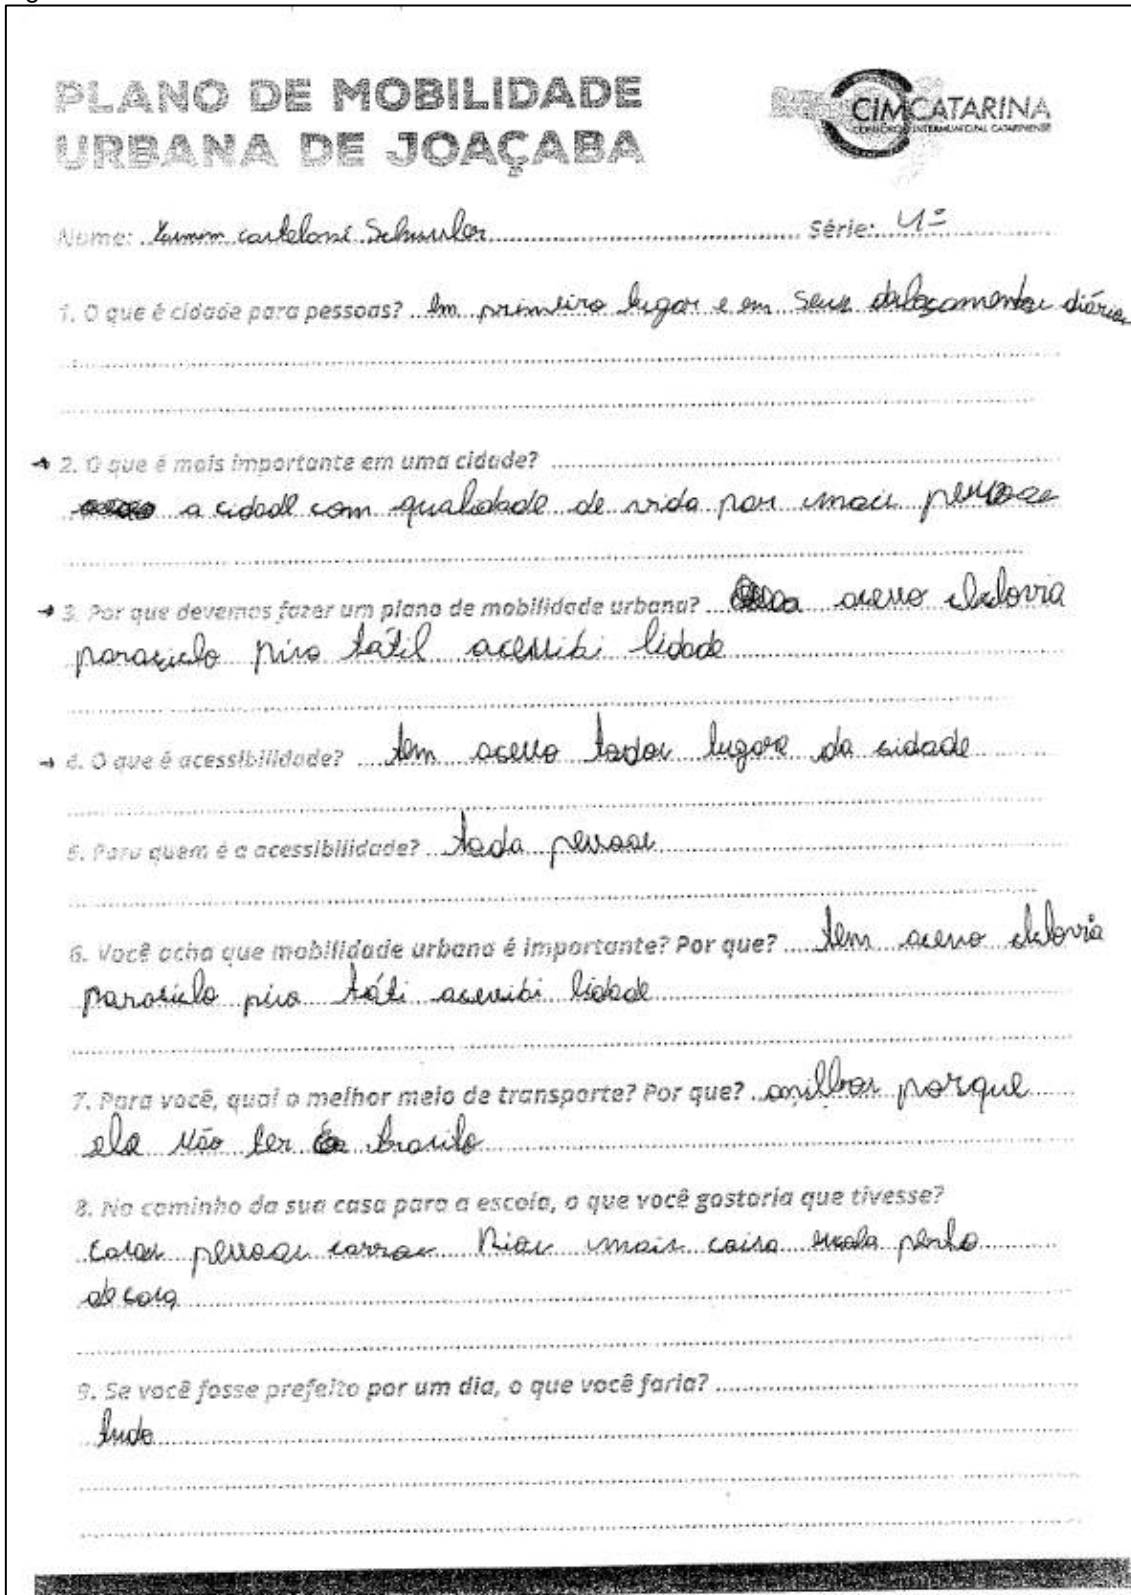 PLANO DE MOBILIDADE
URBANA DE JOAÇABA
CIMCATARINA
CONSÓRCIO INTERMUNICIPAL CATARINENSE
Nome: Série: 4º
1. O que é cidade para pessoas? Em primeiro lugar e em seus diários
2. O que é mais importante em uma cidade?
a cidade com qualidade de vida por mais pessoas
3. Por que devemos fazer um plano de mobilidade urbana? acesso ciclovia
paraciclo piso tátil acessibi lidade
4. O que é acessibilidade? tem acesso todos lugare da sidade
5. Para quem é a acessibilidade? toda pessoas
6. Você acha que mobilidade urbana é importante? Por que? tem acesso ciclovia
paraciclo piso táti acessibi lidade
7. Para você, qual o melhor meio de transporte? Por que? porque
ele não ter
8. No caminho da sua casa para a escola, o que você gostaria que tivesse?
casas pessoas carros mais coisa escola perto
de casa
9. Se você fosse prefeito por um dia, o que você faria?
tudo